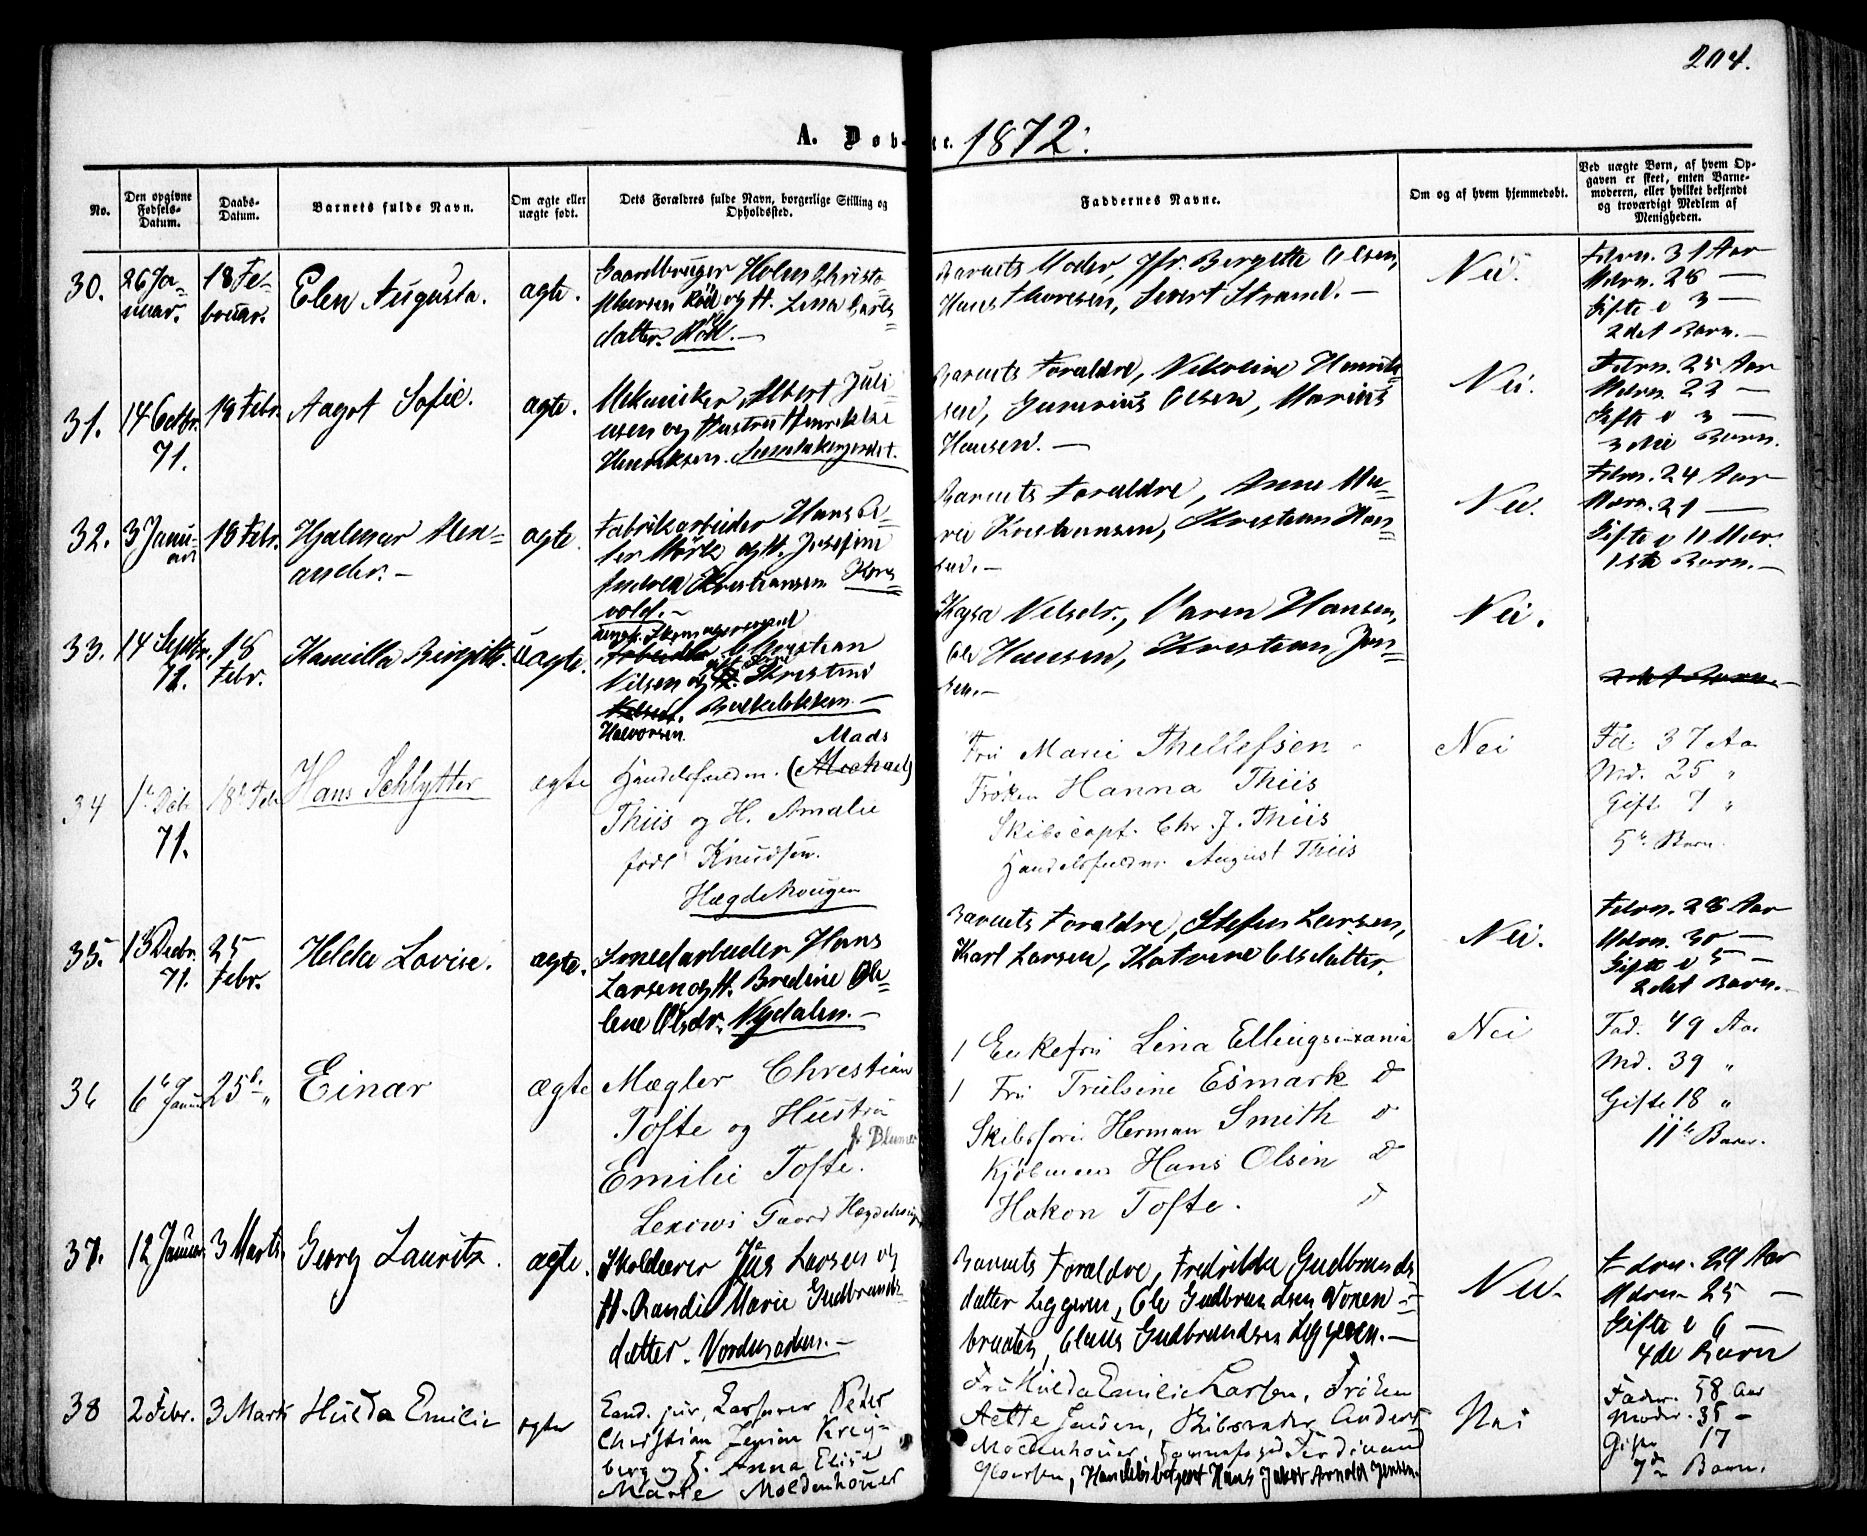 204.
A. Døbte. 1872.
No.
Den opgivne Fødsels-Datum.
Daabs-Datum.
Barnets fulde Navn.
Om ægte eller uægte født.
Dets Forældres fulde Navn, borgerlige Stilling og Opholdssted.
Faddernes Navne.
Om og af hvem hjemmedøbt.
Ved uægte Børn, af hvem Opgaven er skeet, enten Barnemoderen, eller hvilket bekjendt og troværdigt Medlem af Menigheden.
30.
26 Ja-
nuar.
18 Fe-
bruar.
Elen Augusta.
ægte.
Gaardbruger Holm Christo-
phersen Röd og H. Lina Carls-
datter. Röd.
Barnets Moder, Jfr. Bergitte Olsen,
Hans Thoresen, Sivert Strand.
Nei.
Fdrn. 31 Aar
Mdrn. 28 —
Gifte i 3 —
2det Barn.
31.
14 Octbr.
71.
18 Febr.
Aagot Sofie.
ægte.
Mekaniker Albert Juli
usen og Hustru Henrikke
Henriksen.
Barnets Forældre, Nikoline Henrik-
sen, Gunerius Olsen, Marius
Hansen.
Nei.
Fdrn. 25 Aar
Mdrn. 22 —
Gifte i 3 —
3die Barn.
32.
3 Janu-
ar
18 Febr.
Hjalmar Alex-
ander.
ægte.
Fabrikarbeider Hans Pe-
ter Mörk og H. Josefine
Andrea Kristiansen Kors
vold.
Barnets Forældre, Anne Ma-
rie Kristiansen, Kristian Han-
sen.
Nei.
Fdrn. 24 Aar
Mdrn. 21 —
Gifte i 11 Mdr.
1ste Barn.
33.
14 Septbr.
71.
18
Febr.
Kamilla Birgitte.
uægte.
ungk. Skomagersvend
Christian
Nilsen og Kristine
Halvorsen
Bolteløkken.
Kajsa Nilsdr., Maren Hansen,
Ole Hansen, Kristian Jen-
sen.
Nei.
2det Barn.
34
1ste Dcb.
71.
18de Feb
Hans Schlytter
ægte
Handelsfuldm. (Michael) Mads
Thiis og H. Amalie
født Knudsen.
Hægdehougen
Fru Marie Thellefsen
Frøken Hanna Thiis
Skibscapt. Chr. J. Thiis
Handelsfuldm. August Thiis
Nei
Fd. 37 Aa
Md. 25 "
Gifte 7 "
5te Barn.
35.
13 Decbr.
71.
25
Febr.
Helda Lovise.
ægte.
Smedarbeider Hans
Larsen og H. Bredine Ole-
lene Olsdr. Nydalen.
Barnets Forældre, Stefen Larsen,
Karl Larsen, Katrine Olsdatter.
Nei.
Fdrn. 28 Aar
Mdrn. 30 —
Gifte i 5 —
2det Barn.
36
6te Januar
25de "
Einar
ægte
Mægler Christian
Tofte og Hustru
f. Blumer
Emilie Tofte.
Lexows Gaard Hægdehoug
1 Enkefru Lina Ellingsen
1 Fru Trulsine Esmark D
Skibsfører Herman Smith D
Kjøbmand Hans Olsen D
Hakon Tofte. D
Nei
Fad. 49 Aa
Md. 39 "
Gifte 18 "
11te Barn.
37.
12 Januar
3 Marts
Georg Lauritz.
ægte.
Skolelærer Jens Larsen og
H. Randi Marie Gudbrands-
datter.
Barnets Forældre, Fredrikke Gudbrands
datter Leggeren, Ole Gudbrandsen Voxen-
braaten, Claus Gudbrandsen Leggeren.
Nei.
Fdrn. 29 Aar
Mdrn. 25 —
Gifte i 6 —
4de Barn
38
2 Febr.
3 Marts
Hulda Emilie
ægte
Cand. jur. Peter
Christian Jensen Kreg-
berg og H. Anna Elise
Marie Moldenhouer
Fru Hulda Emilie Larsen, Frøken
Aette Jensen, Skibsreder Anders
Moldenhouer, Ferdinand
Gloersen, Handelsbetjent Hans Jakob Arnoldt Jensen.
Nei
Fader. 58 Aar
Moder. 35 —
Gifte 17
7de Barn.